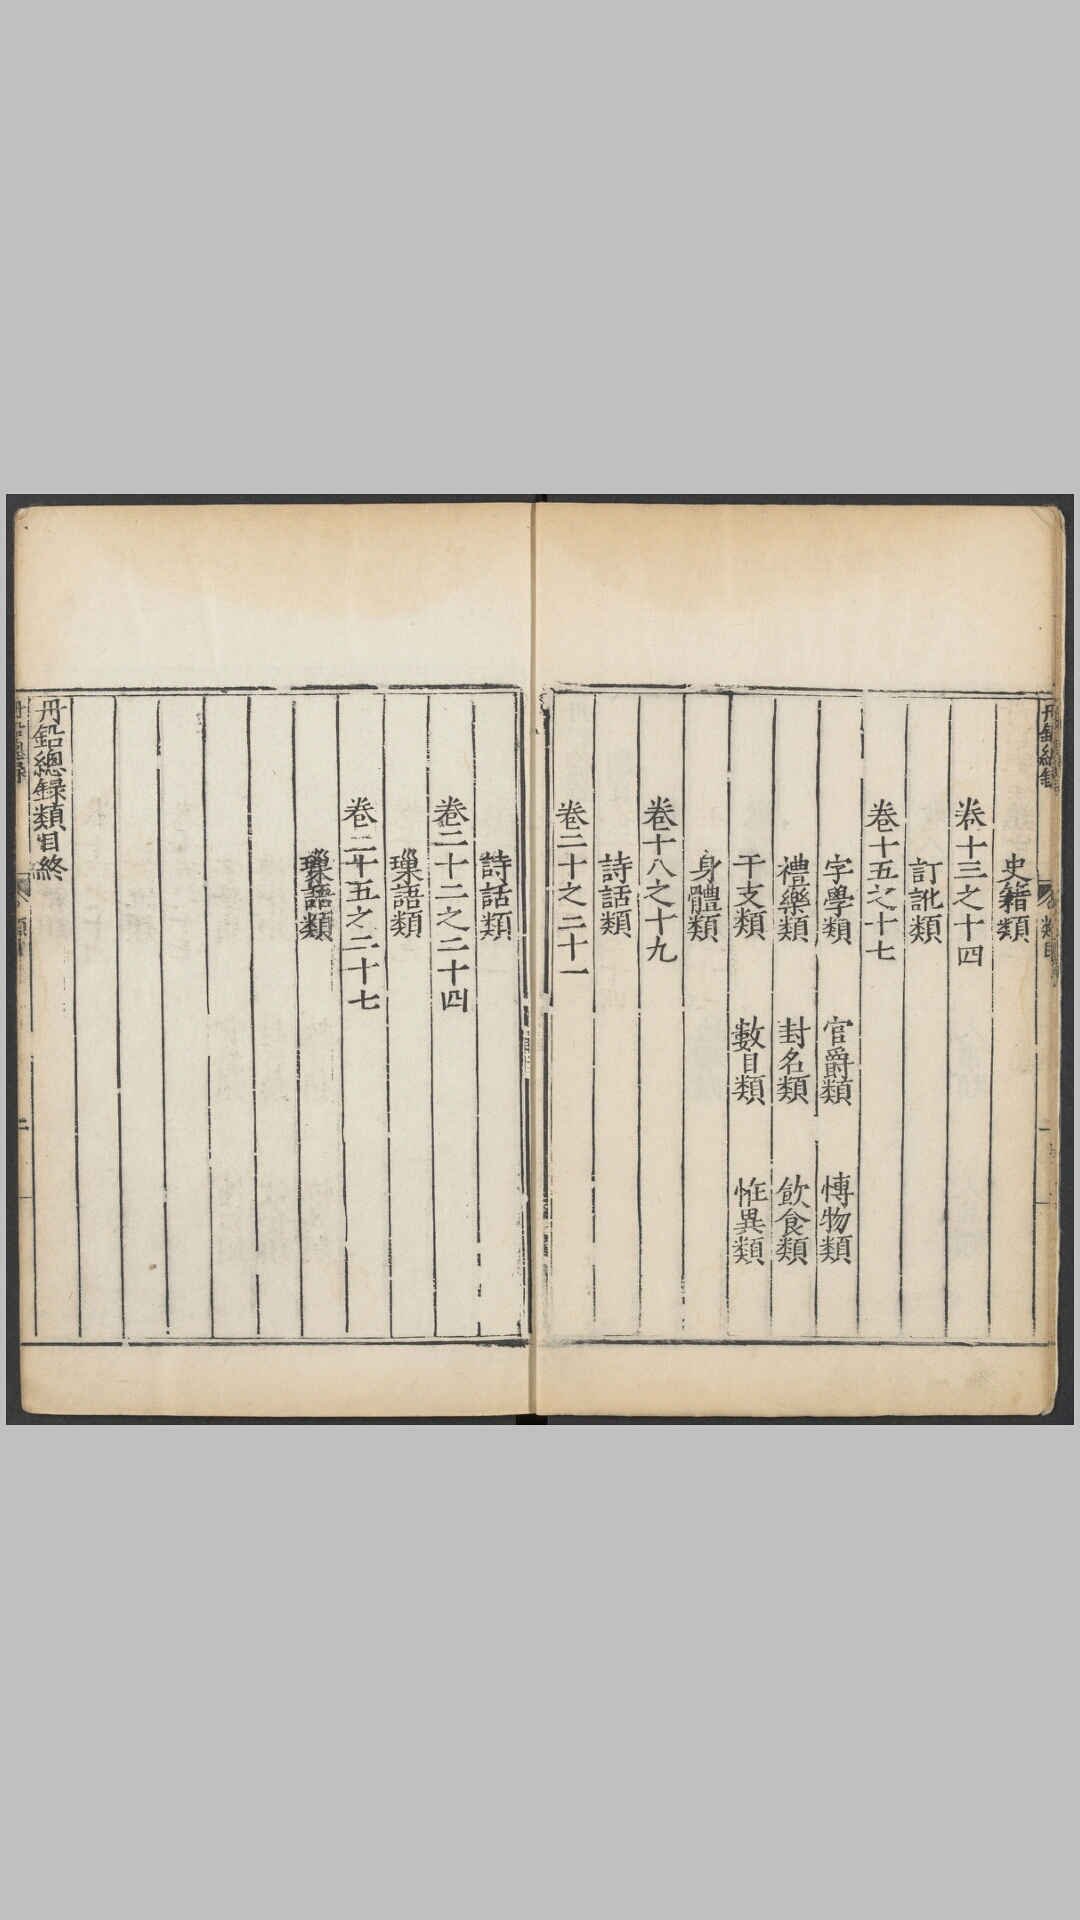 史籍類
卷十三之十四
訂訛類
卷十五之十七
字學類 官爵類 博物類
禮樂類 封名類 飲食類
干支類 數目類 恠異類
身體類
卷十八之十九
詩話類
卷二十之二十一
詩話類
卷二十二之二十四
璅語類
卷二十五之二十七
璅語類
丹鉛總録類目終